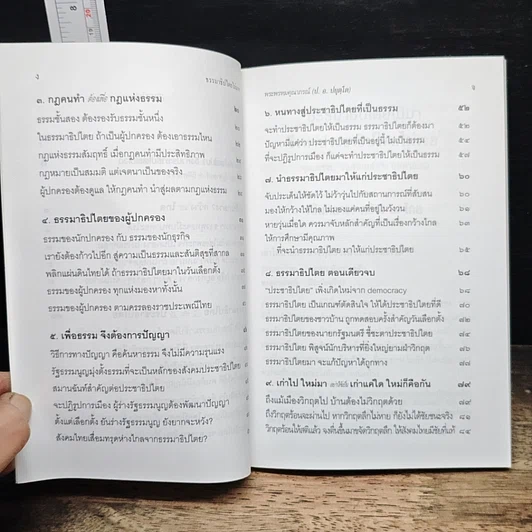 ง
ธรรมาธิปไตยไม่มา
๓. กฎคนทำ ต้องถึง กฎแห่งธรรม
ธรรมชั้นสอง ต้องรองรับธรรมชั้นหนึ่ง
ในธรรมาธิปไตย ถ้าเป็นผู้ปกครอง ต้องเอาธรรมไหน
กฎแห่งธรรมสัมฤทธิ์ เมื่อกฎคนทำมีประสิทธิภาพ
กฎหมายเป็นสมมติ แต่เจตนาเป็นของจริง
ผู้ปกครองต้องดูแล ให้กฎคนทำ นำสู่ผลตามกฎแห่งธรรม
๔. ธรรมาธิปไตยของผู้ปกครอง
ธรรมของนักปกครอง กับ ธรรมของนักธุรกิจ
เรายังต้องก้าวไปอีก สู่ความเป็นธรรมและสันติสุขที่สากล
พลิกแผ่นดินไทยได้ ถ้าธรรมาธิปไตยมาในวันเลือกตั้ง
ธรรมของผู้ปกครอง ทุกแห่งมองหาทั้งนั้น
ธรรมของผู้ปกครอง ตามครรลองราชประเพณีไทย
๕. เพื่อธรรม จึงต้องการปัญญา
วิธีการทางปัญญา คือค้นหาธรรม จึงไม่มีความรุนแรง
รัฐธรรมนูญมุ่งธรรมที่จะเป็นหลักของสังคมประชาธิปไตย
สมานฉันท์สำคัญต่อประชาธิปไตย
จะปฏิรูปการเมือง ผู้ร่างรัฐธรรมนูญต้องพัฒนาปัญญา
ตั้งแต่เลือกตั้ง ยันร่างรัฐธรรมนูญ ยังยากจะหวัง?
สังคมไทยเสื่อมทรุดห่างไกลจากธรรมาธิปไตย?
พระพรหมคุณาภรณ์ (ป. อ. ปยุตฺโต)
จ
๖. หนทางสู่ประชาธิปไตยที่เป็นธรรม ๕๒
จะทำประชาธิปไตยให้เป็นธรรม ธรรมาธิปไตยก็ต้องมา ๕๒
ปัญหามีแค่ว่า ประชาธิปไตยที่เป็นอยู่นี้ ไม่เป็นธรรม ๕๔
ที่จะปฏิรูปการเมือง ก็แค่จะทำประชาธิปไตยให้เป็นธรรม ๕๗
๗. นำธรรมาธิปไตยมาให้แก่ประชาธิปไตย ๖๐
จับประเด็นให้ชัดไว้ ไม่ว้าวุ่นไปกับสถานการณ์ที่สับสน ๖๐
มองให้กว้างให้ไกล ไม่มองแค่คนที่อยู่ในวังวน
หายวุ่นเมื่อใด ควรมาจับหลักสำคัญที่เป็นเรื่องกว้างไกล
ให้การศึกษามีคุณภาพ
ที่จะนำธรรมาธิปไตย มาให้แก่ประชาธิปไตย ๖๕
๘. ธรรมาธิปไตย ตอนเดียวจบ ๖๘
"ประชาธิปไตย" เพิ่งเกิดใหม่จาก democracy
ธรรมาธิปไตย เป็นเกณฑ์ตัดสินใจ ให้ได้ประชาธิปไตยที่ดี
ธรรมาธิปไตยของชาวบ้าน ถูกทดสอบครั้งสำคัญวันเลือกตั้ง
ธรรมาธิปไตยของนายกรัฐมนตรี ชี้ชะตาประชาธิปไตย
ธรรมาธิปไตย พิสูจน์นักบริหารที่ยิ่งใหญ่ยามฝ่าวิกฤต
ธรรมาธิปไตยมา จะแก้ปัญหาได้ถูกทาง
๙. เก่าไป ใหม่มา เก่าแค่ใด ใหม่ก็คือกัน ๗๙
ถึงแม้เมืองวิกฤตไป บ้านต้องไม่วิกฤตด้วย
ถึงวิกฤตร้อนจะผ่านไป หากวิกฤตลึกไม่หาย ก็ยังไม่ได้ชัยชนะจริง
วิกฤตร้อนให้สติแล้ว จงตื่นขึ้นมาขจัดวิกฤตลึก ให้สังคมไทยมีชัยที่แท้